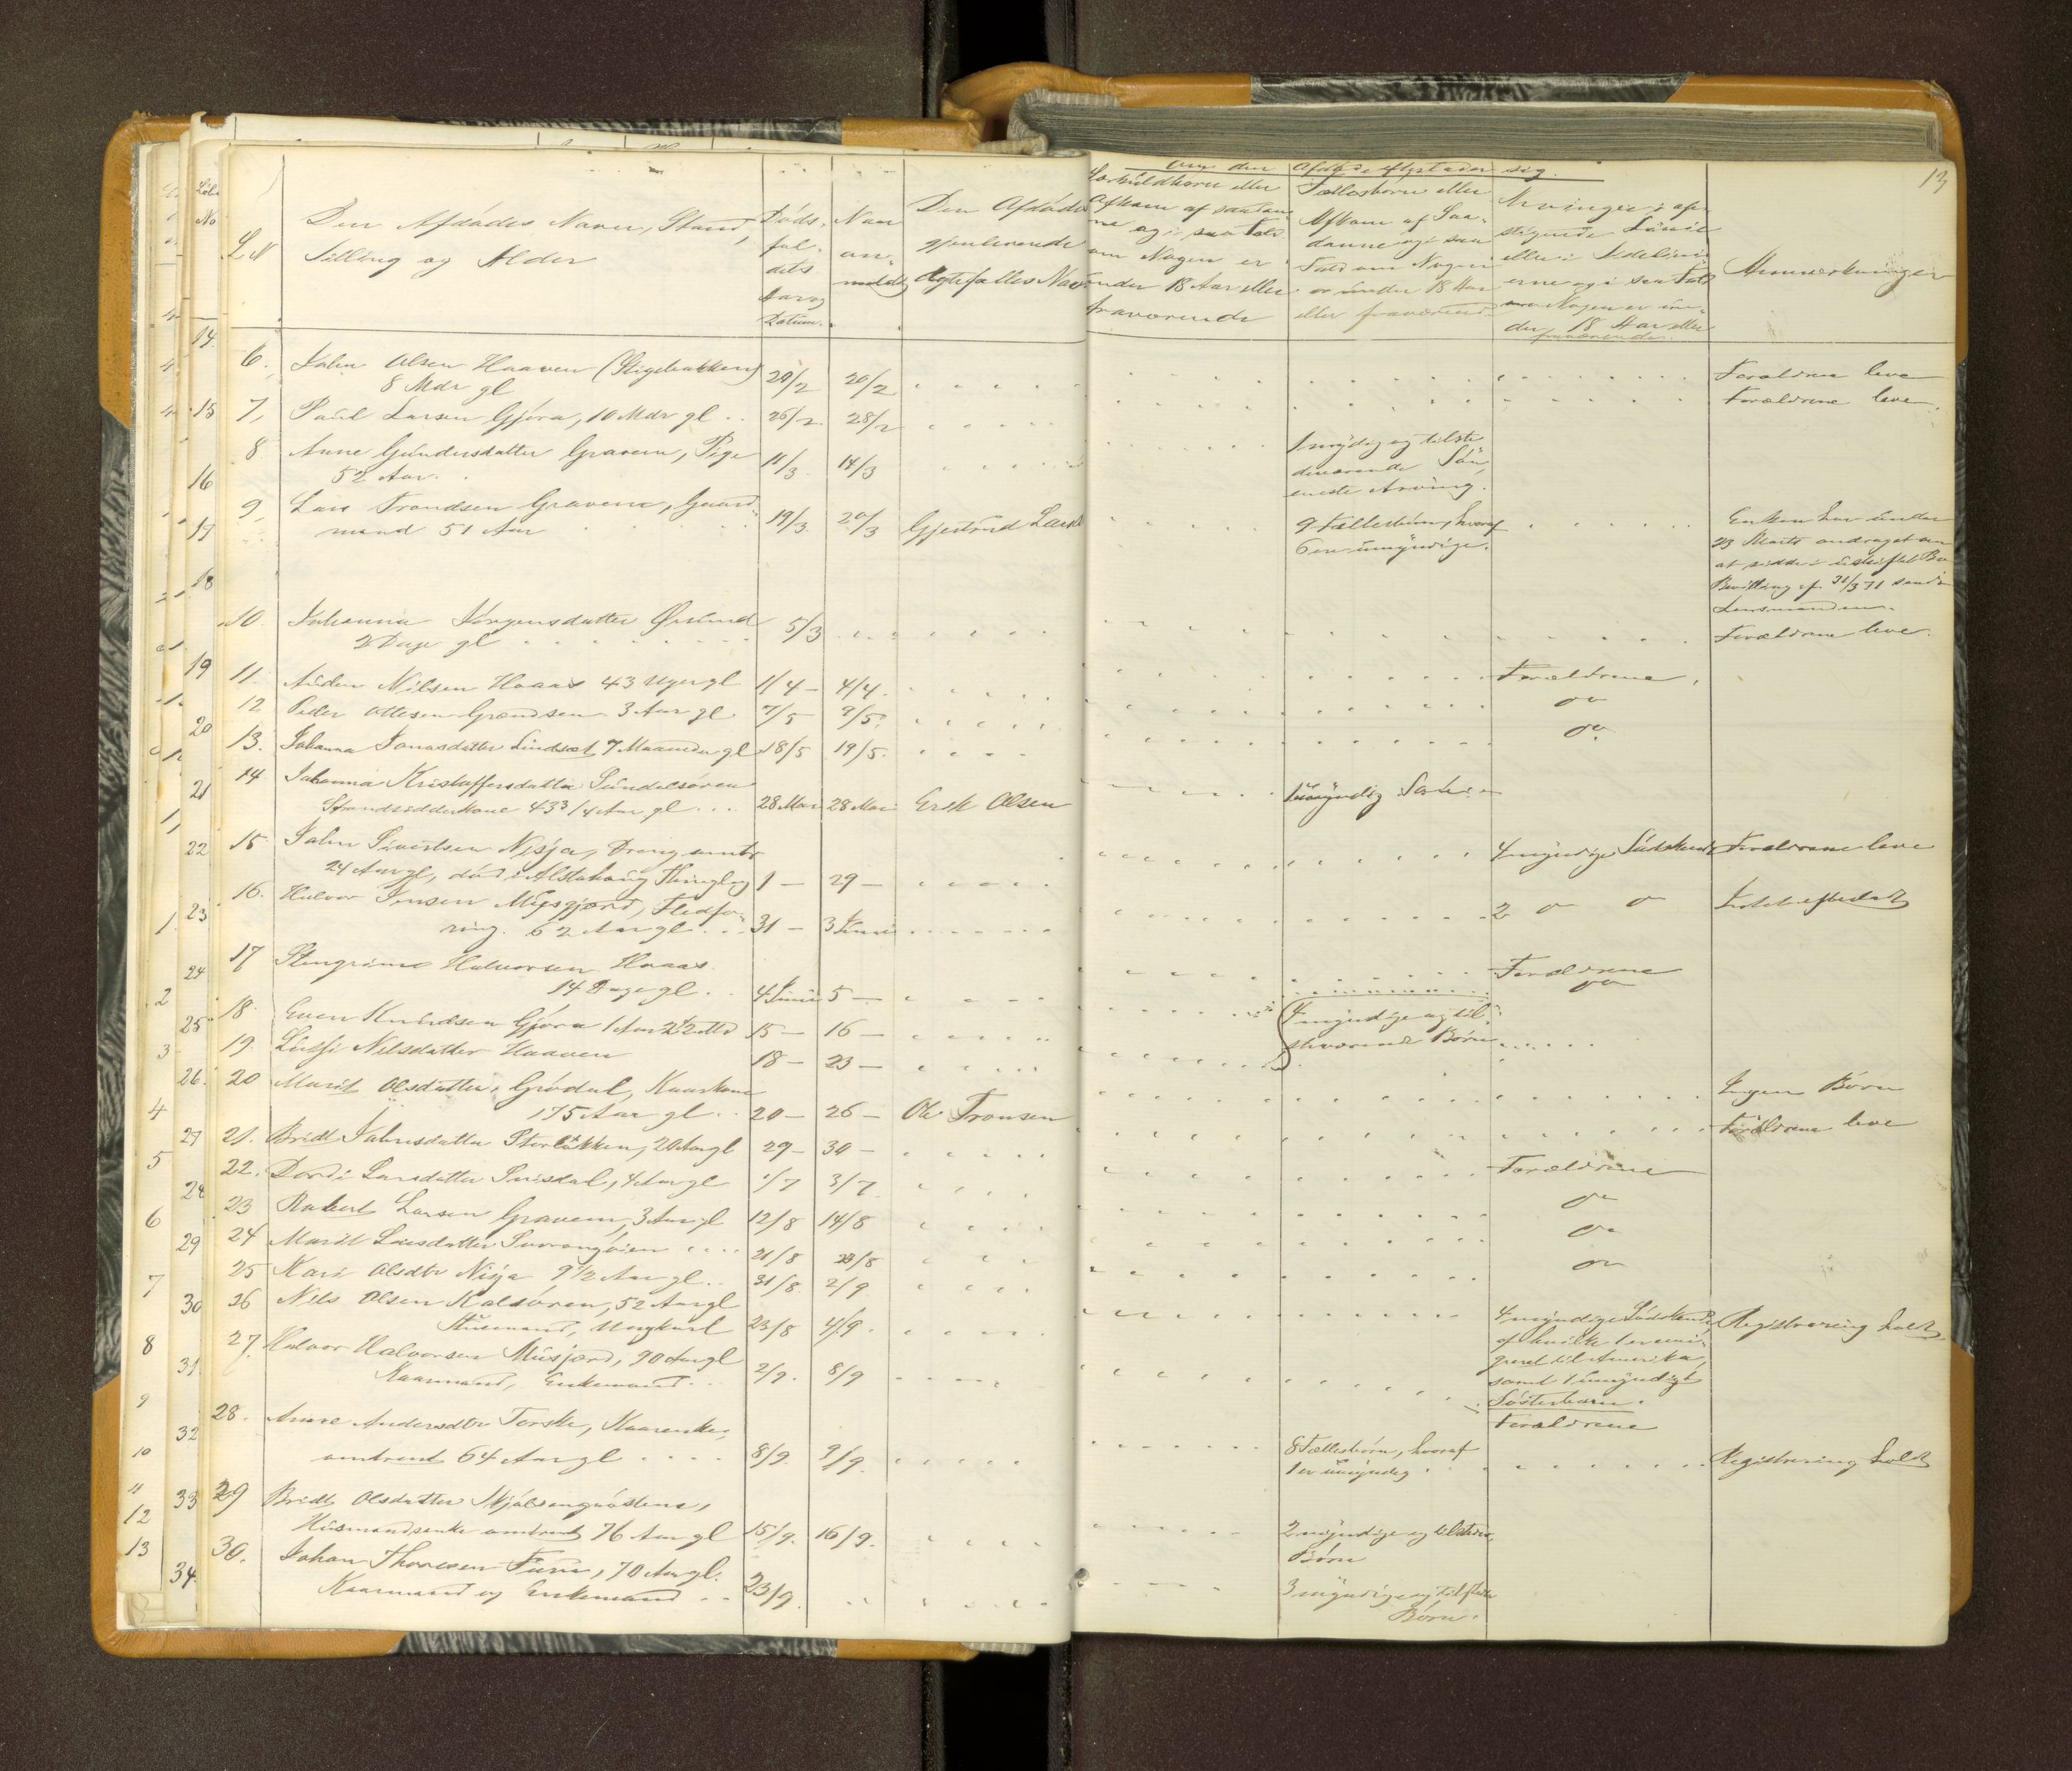 Den Afdødes Navn, Stand,
Stilling og Alder
LN
Døds-
fal-
dets
Aar og
Datum.
Naar
an-
meldt
Den Afdødes
gjenlevende
Ægtefælles Navn
den Afdøde efterlader sig.
13
Særkuldbørn eller
Afkom af saadan
om Nogen er
under 18 Aar eller
fraværende
Fællesbørn eller
Afkom af Saa-
danne og i saa
Fald om Nogen
er under 18 Aar
eller fraværend
Arvinger i op-
stigende Linie
eller i Sidelini-
erne og i saa Fald
om Nogen er un-
der 18 Aar eller
fraværende.
Anmærkninger
6. John Olsen Haaven (Stigebakken) 20/2 20/2 Forældrene leve
8 Mdr gl
7, Paul Larsen Gjøra, 10 Mdr gl 26/2 28/2 Forældrene leve.
8 Anne Gundersdatter Gravem, Pige 11/3 14/3
52 Aar.
1 myndig og tilste
deværende Søn,
eneste Arving.
9, Lars Trondsen Gravem, Gaard-
mand 51 Aar 19/3. 20/3 Gjertrud Larsd
9 Fællesbørn, hvoraf
6 ere umyndige.
Enken har under
23 Marts andraget om
at sidde i uskiftet Bo
Bevilling af 31/3 71 sendt
Lensmanden.
10. Johanna Jørgensdatter Ørsund 5/3 Forældrene leve.
2 Dage gl
11. Auden Nilsen Haaas 43 Uger gl 1/4 4/4. Forældrene.
12 Peder Ottesen Grændsen 3 Aar gl 7/5 9/5. do
13. Johanna Jonasdatter Lindset 7 Maaneder gl 18/5 19/5. do
14 Johanna Kristoffersdatter Sundalsøren
Strandsidderkone 43 3/4 Aar gl 28 Mai 28 Mai Erik Olsen 1 umyndig Søn.
15 John Sivertsen Nisja, Dreng omtr
24 Aar gl, død i Alstahoug Thinglag 1 — 29 — 4 myndige Sødskende Forældrene leve
16. Halvor Jensen Musgjerd, Fledfø-
ring. 62 Aar gl 31 — 3 Juni 2 do do Intet efterladt
17 Stengrim Halvorsen Haaas
14 Dage gl. 4 Juni 5 — Forældrene
18. Even Knudsen Gjøra 1 Aar 2 1/2 Md 15 — 16 — do
19. Lussi Nilsdatter Haaven 18 — 23 —
4 myndige og til-
stværende Børn
20 Marit Olsdatter Grødal, Kaarkone
75 Aar gl 20 — 26 — Ole Tronsen Ingen Børn
21. Bridt Johnsdatter Storløkken, 20 Aar gl 29 — 30 — Forældrene leve
22. Dordi Larsdatter 4 Aar gl 1/7 3/7 Forældrene
23 Robert Larsen Gravem, 3 Aar gl 12/8 14/8 do
24 Marit Larsdatter 21/8 23/8 do
25 Kari Olsdtr Nisja 9 1/2 Aar gl 31/8 2/9 do
26 Nils Olsen Kalsøren, 52 Aar gl
Husmand, Ungkarl 23/8 4/9.
4 myndige Sødskende,
af hvilke 1 er emi-
greret til Amerika,
samt 1 umyndigt
Søsterbarn.
Registrering holdt
27. Halvor Halvorsen Musjærd, 90 Aar gl
Kaarmand, Enkemand 2/9. 8/9 Forældrene
28. Anne Andersdtr Torske, Kaarenke,
omtrent 64 Aar gl 8/9. 9/9.
8 Fællesbørn, hvoraf
1 er umyndig
Registrering holdt
29 Bridt Olsdatter
Husmandsenke omtrent 76 Aar gl 15/9. 16/9.
2 myndige og tilstedev.
Børn
30. Johan Thoresen Furu, 70 Aar gl.
Kaarmand og Enkemand 23/9.
3 myndige og tilstede
Børn.